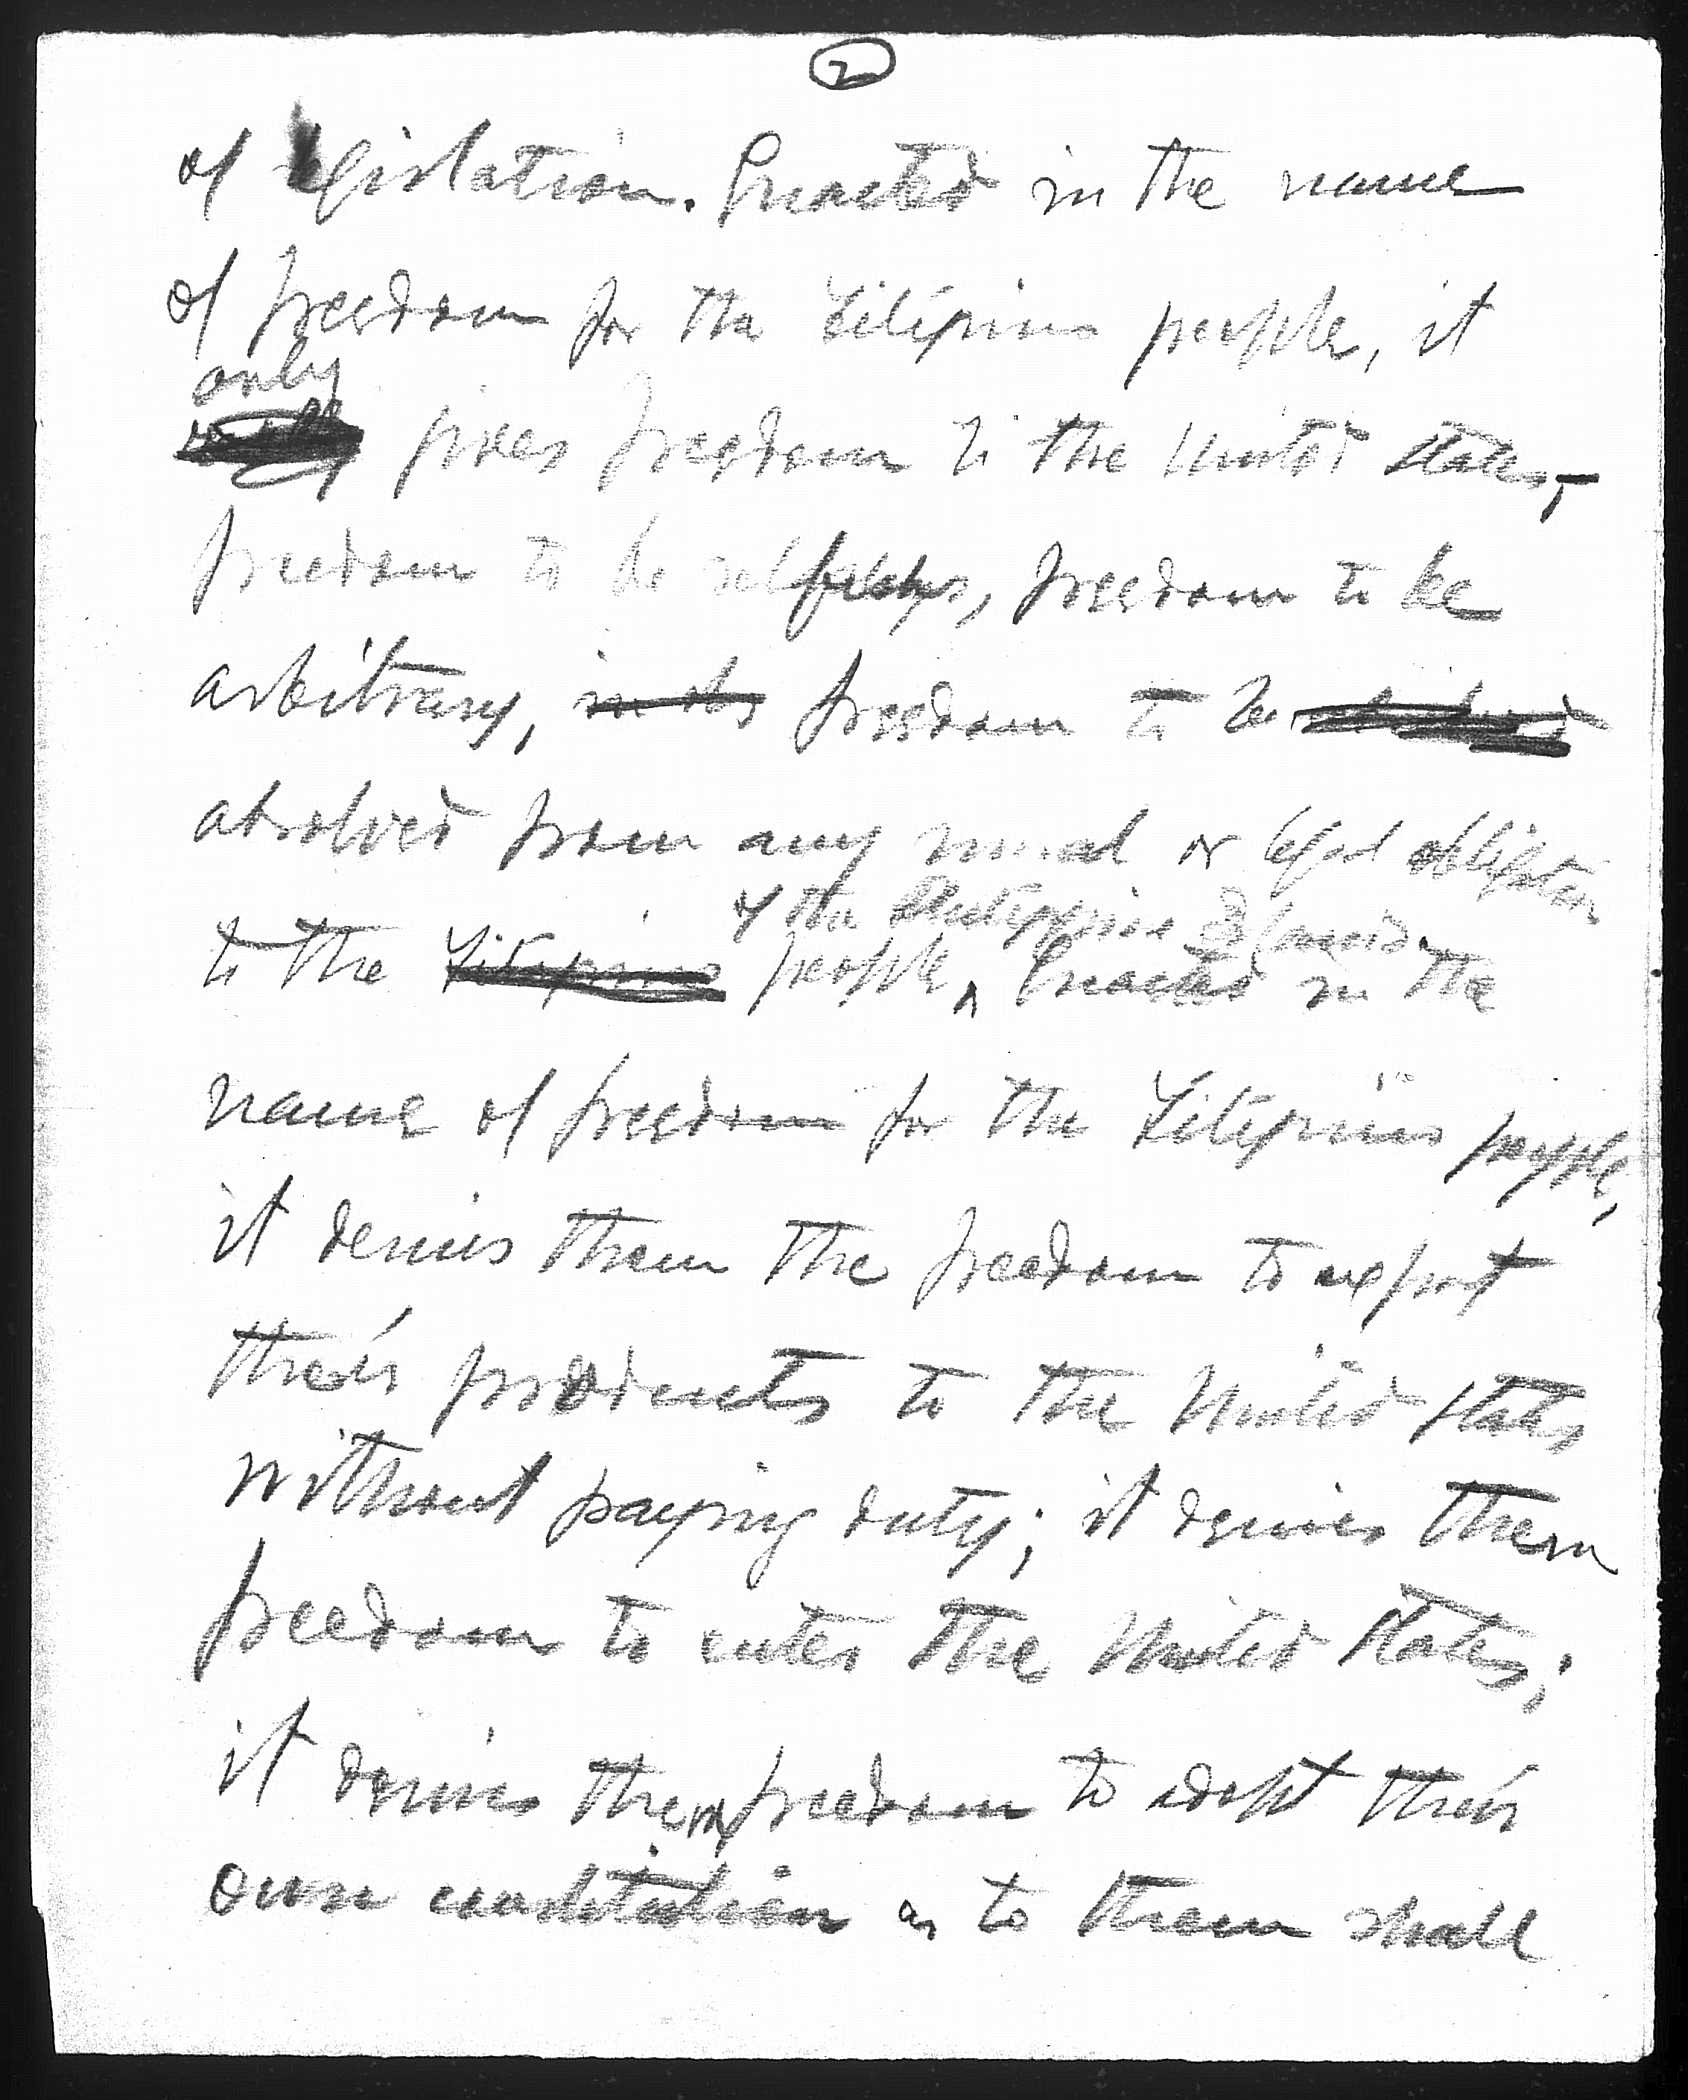 2
of legislation. Enacted in the name
of freedom for the Filipino people, it
only
gives freedom to the United States,-
freedom to be selfish, freedom to be
arbitrary, freedom to be
absolved from any moral or legal obligation
of the Philippine Islands.
to the Filipino people ^ Enacted in the
name of freedom for the Filipino people,
it denies them the freedom to export
their products to the United States
without paying duty; it denies them
freedom to enter the United States;
it denies them freedom to adopt their
own constitution as to them shall